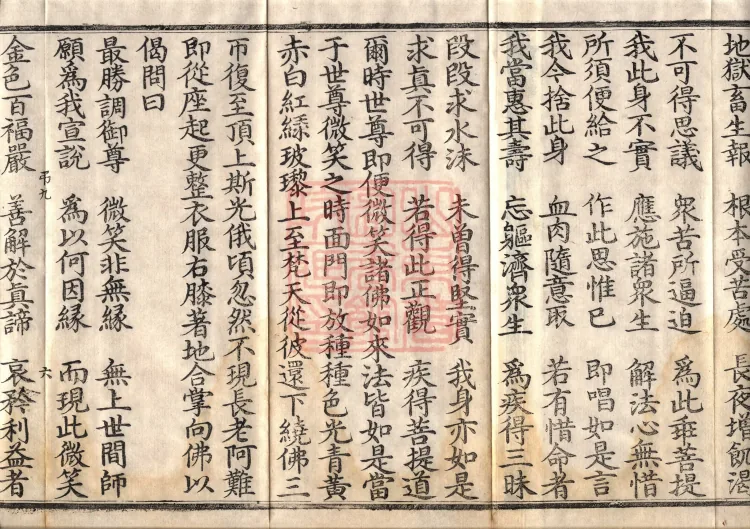 地獄畜生報　根本受苦處　長夜增飢渴
不可得思議　衆苦所逼迫　爲此乖菩提
我此身不實　應施諸衆生　解法心無惜
所須便給之　作此思惟已　即唱如是言
我今捨此身　血肉隨意取　若有惜命者
我當惠其壽　忘軀濟衆生　爲疾得三昧
段段求水沫　未曾得堅實　我身亦如是
求真不可得　若得此正觀　疾得菩提道
爾時世尊即便微笑諸佛如來法皆如是當
于世尊微笑之時面門即放種種色光青黃
赤白紅綠玻瓈上至梵天從彼還下繞佛三
帀復至頂上斯光俄頃忽然不現長老阿難
即從座起更整衣服右膝著地合掌向佛以
偈問曰
最勝調御尊　微笑非無緣　無上世間師
願爲我宣說　爲以何因緣　而現此微笑
弔九　六
金色百福嚴　善解於眞諦　哀矜利益者